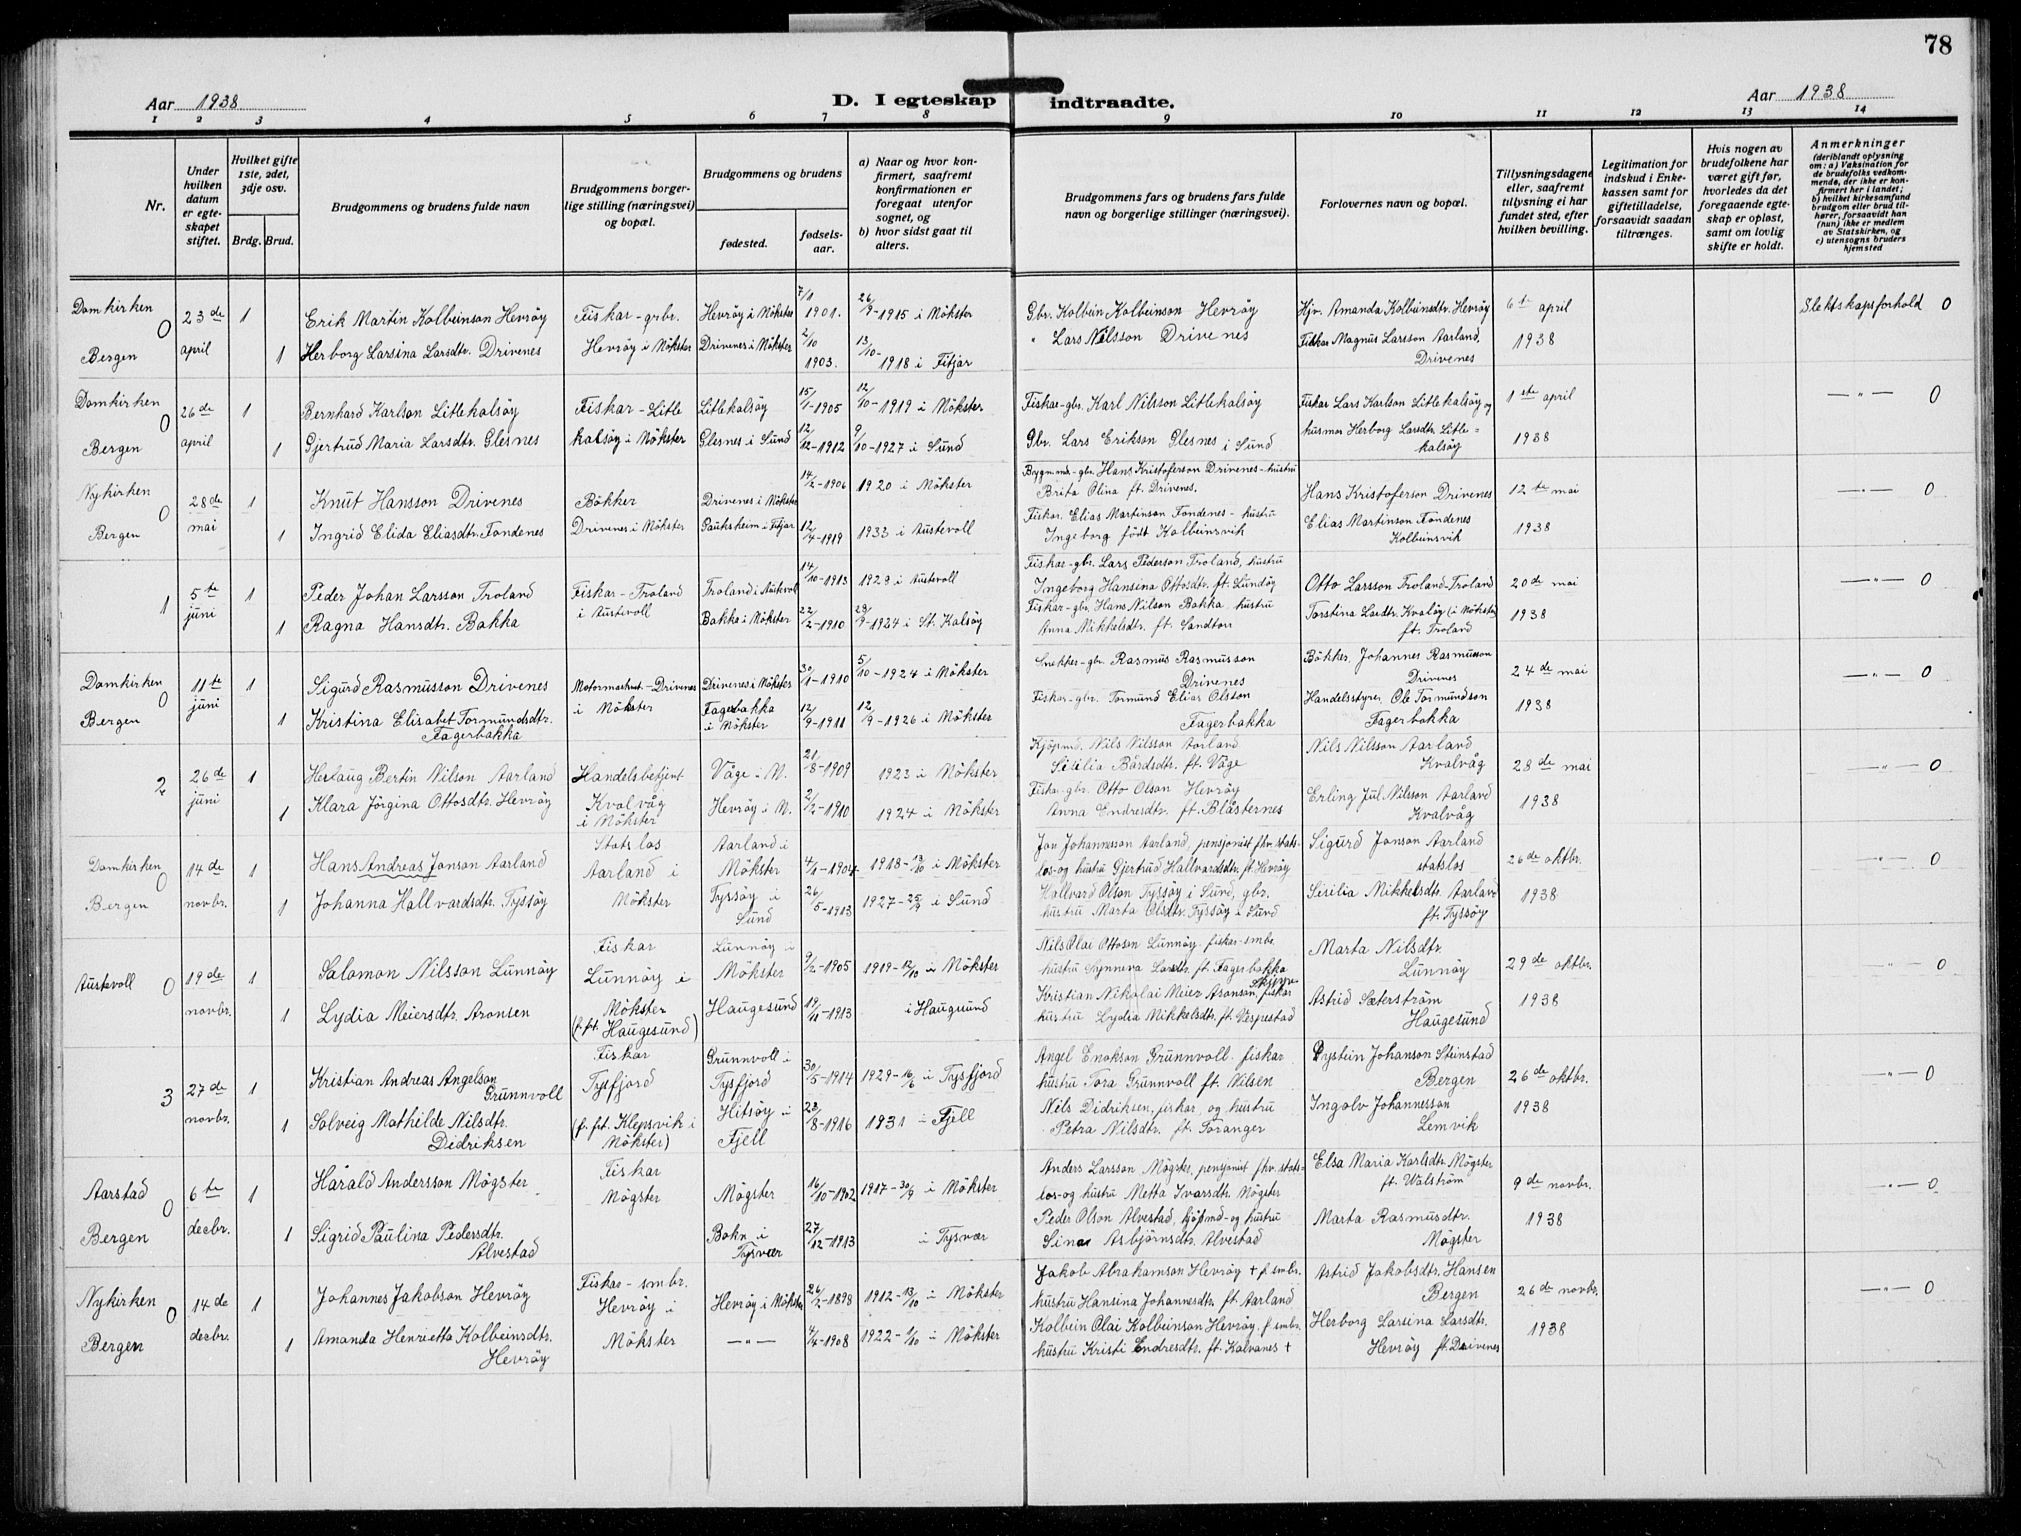 78
Aar 1938
D. I egteskap indtraadte.
Aar 1938
1 2 3 4 5 6 7 8 9 10 11 12 13 14
Nr.
Under hvilken datum er egteskapet stiftet.
Hvilket gifte 1ste, 2det, 3dje osv.
Brdg. Brud.
Brudgommens og brudens fulde navn
Brudgommens borgerlige stilling (næringsvei) og bopæl.
Brudgommens og brudens
fødested.
fødselsaar.
a) Naar og hvor konfirmert, saafremt konfirmationen er foregaat utenfor sognet, og
b) hvor sidst gaat til alters.
Brudgommens fars og brudens fars fulde navn og borgerlige stillinger (næringsvei).
Forlovernes navn og bopæl.
Tillysningsdagene eller, saafremt tillysning ei har fundet sted, efter hvilken bevilling.
Legitimation for indskud i Enkekassen samt for giftetilladelse, forsaavidt saadan tiltrænges.
Hvis nogen av brudefolkene har været gift før, hvorledes da det foregaaende egteskap er opløst, samt om lovlig skifte er holdt.
Anmerkninger
(deriblandt oplysning om: a) Vaksination for de brudefolks vedkommende, der ikke er konfirmert her i landet; b) hvilket kirkesamfund brudgom eller brud tilhører, forsaavidt han (hun) ikke er medlem av Statskirken, og c) utensogns bruders hjemsted
Domkirken 0 Bergen 23de april 1 Erik Martin Kolbeinson Hevröy Fiskar-grbr. Hevröy i Mökster Hevröy i Mökster 7/1 1901. 26/9-1915 i Mökster Gbr. Kolbein Kolbeinson Hevröy Hjv. Amanda Kolbeinsdtr. Hevröy 6te april 1938 Slektskapsforhold 0
1 Herborg Larsina Larsdtr. Drivenes Drivenes i Mökster 2/10 1903. 13/10-1918 i Fitjar " Lars Nilsson Drivenes Fiskar Magnus Larsson Aarland, Drivenes
Domkirken 0 Bergen 26de april 1 Bernhard Karlson Litlekalsöy Fiskar-Litlekalsöy i Mökster Litlekalsöy 15/1-1905 12/10-1919 i Mökster Fiskar-gbr. Karl Nilsson Litlekalsöy Fiskar Lars Karlson Litlekalsöy og 1ste april 1938 — " — 0
1 Gjertrud Maria Larsdtr. Glesnes Glesnes i Sund 12/12-1912 9/10-1927 i Sund Gbr. Lars Erikson Glesnes i Sund husmor Herborg Larsdtr. Litlekalsöy
Nykirken 0 Bergen 28de mai 1 Knut Hansson Drivenes Bökker Drivenes i Mökster Drivenes i Mökster 14/2-1906 1920 i Mökster Bygmnd-gbr. Hans Kristoferson Drivenes-hustru Brita Olina ft. Drivenes. Hans Kristoferson Drivenes 12te mai 1938 — " — 0
1 Ingrid Elida Eliasdtr. Fondenes Pauksheim i Fitjar 12/4-1919 1933 i Austevoll Fiskar. Elias Martinson Fondenes-hustru Ingeborg födt Kolbeinsvik Elias Martinson Fondenes Kolbeinsvik
1 5te juni 1 Peder Johan Larsson Troland Fiskar-Troland i Austevoll Troland i Austevoll 14/10-1913 1929 i Austevoll Fiskar-gbr. Lars Pederson Troland, hustru Ingeborg Hansina Ottosdtr. ft. Lundöy Otto Larsson Troland-Troland 20de mai 1938 — " — 0
1 Ragna Hansdtr. Bakka Bakka i Mökster 22/2-1910 28/9-1924 i St. Kalsöy Fiskar-gbr. Hans Nilson Bakka hustru Anna Mikkelsdtr. ft. Sandton Torstina Larsdtr. Kvalöy (i Mökster) ft. Troland
Domkirken 0 Bergen 11te juni 1 Sigurd Rasmusson Drivenes Motormaskinist-Drivenes i Mökster Drivenes i Mökster 30/1-1910 5/10-1924 i Mökster Snekker-gbr. Rasmus Rasmusson Drivenes Bökker. Johannes Rasmusson Drivenes 24de mai 1938 — " — 0
1 Kristina Elisabet Tormundsdtr. Fagerbakka Fagerbakka i Mökster 12/9-1911 12/9-1926 i Mökster Fiskar-gbr. Tormund Elias Olson Fagerbakka Handelsstyrer Ole Tormundson Fagerbakka
2 26de juni 1 Herlaug Bertin Nilson Aarland Handelsbetjent Kvalvåg i Mökster Våge i M. 21/8-1909 1923 i Mökster Kjöpmd. Nils Nilsson Aarland Sesilia Bårdsdtr. ft. Våge Nils Nilsson Aarland Kvalvåg 28de mai 1938 — " — 0
1 Klara Jörgina Ottosdtr. Hevröy Hevröy i M. 2/2-1910 1924 i Mökster Fiskar-gbr. Otto Olson Hevröy Anna Endresdtr. ft. Blåsternes Erling Jul Nilsson Aarland Kvalvåg
Domkirken 0 Bergen 14de novbr. 1 Hans Andreas Jonson Aarland Statslos Aarland i Mökster Aarland i Mökster 4/1-1904 1918-13/10 i Mökster Jon Johannesson Aarland, pensjonist fhv. statslos-og hustru Gjertrud Hallvardsdtr. ft. Hevröy Sigurd Jonson Aarland statslos 26de oktbr. 1938 — " — 0
1 Johanna Hallvardsdtr. Tyssöy Tyssöy i Sund 26/5-1913 1927-25/9 i Sund Hallvard Olson Tyssöy i Sund, gbr. hustru Marta Olsdtr. Tyssöy i Sund Sesilia Mikkelsdtr. Aarland ft. Tyssöy
Austevoll 0 19de novbr. 1 Salomon Nilsson Lunnöy Fiskar Lunnöy i Mökster (f. ft. Haugesund) Lunnöy i Mökster 9/2-1905 1919-12/10 i Mökster Nils Olai Ottosen Lunnöy. fiskar-smbr. hustru Synneva Larsdtr. ft. Fagerbakka Marta Nilsdtr. Lunnöy 29de oktbr. 1938 — " — 0
1 Lydia Meiersdtr. Aronsen Haugesund 19/11-1913 i Haugesund Kristian Nikolai Meier Aronson, fiskar hustru Lydia Mikkelsdtr. ft. Vespestad Astrid Sæterström Haugesund
3 27de novbr. 1 Kristian Andreas Angelson Grunnvoll Fiskar Tysfjord (f. ft. Klepsvik i Mökster) Grunnvoll i Tysfjord 30/5-1914 1929-16/6 i Tysfjord Angel Enokson Grunnvoll. fiskar hustru Tora Grunnvoll ft. Nilsen Öystein Johanson Steinstad Bergen 26de oktbr. 1938 — " — 0
1 Solveig Mathilde Nilsdtr. Didriksen Hitsöy i Fjell 23/8-1916 1931 i Fjell Nils Didriksen, fiskar, og hustru Petra Nilsdtr. ft. Toranger Ingolv Johannesson Lemvik
Aarstad 0 Bergen 6te decbr. 1 Harald Andersson Mögster Fiskar Mögster Mögster 16/10-1902 1917-30/9 i Mökster Anders Larsson Mögster, pensjonist fhv. statslos-og hustru Metta Ivarsdtr. Mögster Elsa Maria Karlsdtr. Mögster ft. Walström 9de novbr. 1938 — " — 0
1 Sigrid Paulina Pedersdtr. Alvestad Bokn i Tysvær 27/12-1913 i Tysvær Peder Olson Alvestad, kjöpmd-og hustru Sina Asbjörnsdtr. Alvestad Marta Rasmusdtr. Mögster
Nykirken 0 Bergen 14de decbr. 1 Johannes Jakobson Hevröy Fiskar-smbr. Hevröy i Mökster Hevröy i Mökster 26/2-1898 1912-13/10 i Mökster Jakob Abrahamson Hevröy + f. smbr. hustru Hansina Johannesdtr. ft. Aarland Astrid Jakobsdtr. Hansen Bergen 26de novbr. 1938 — " — 0
1 Amanda Henrietta Kolbeinsdtr. Hevröy — " — 4/4-1908 1922-1/10 i Mökster Kolbein Olai Kolbeinson Hevröy. f. smbr. hustru Kristi Endresdtr. ft. Kalvanes + Herborg Larsina Larsdtr. Hevröy ft. Drivenes